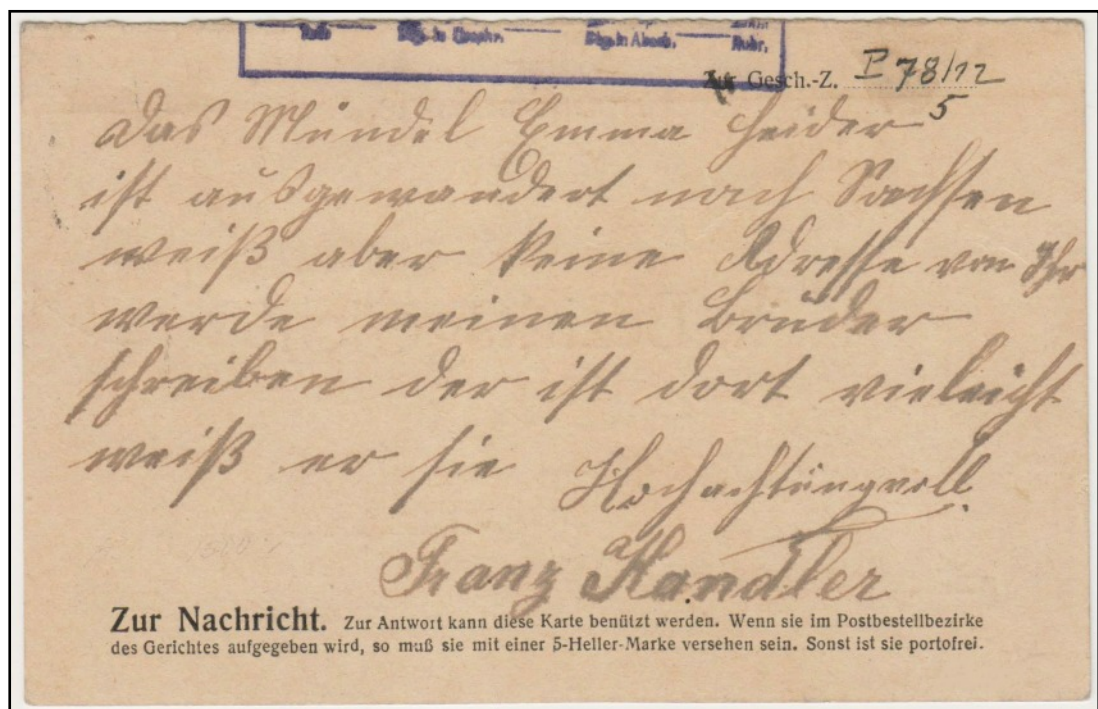 Blg. in Abschr.
Ruhr.
Zur Gesch.-Z. P 78/12
5
Das Mündel Emma Heider
ist ausgewandert nach Sachsen
weiß aber keine Adresse von Ihr
werde meinen Bruder
schreiben der ist dort vieleicht
weiß er sie Hochachtungvoll
Franz Handler
Zur Nachricht. Zur Antwort kann diese Karte benützt werden. Wenn sie im Postbestellbezirke
des Gerichtes aufgegeben wird, so muß sie mit einer 5-Heller-Marke versehen sein. Sonst ist sie portofrei.